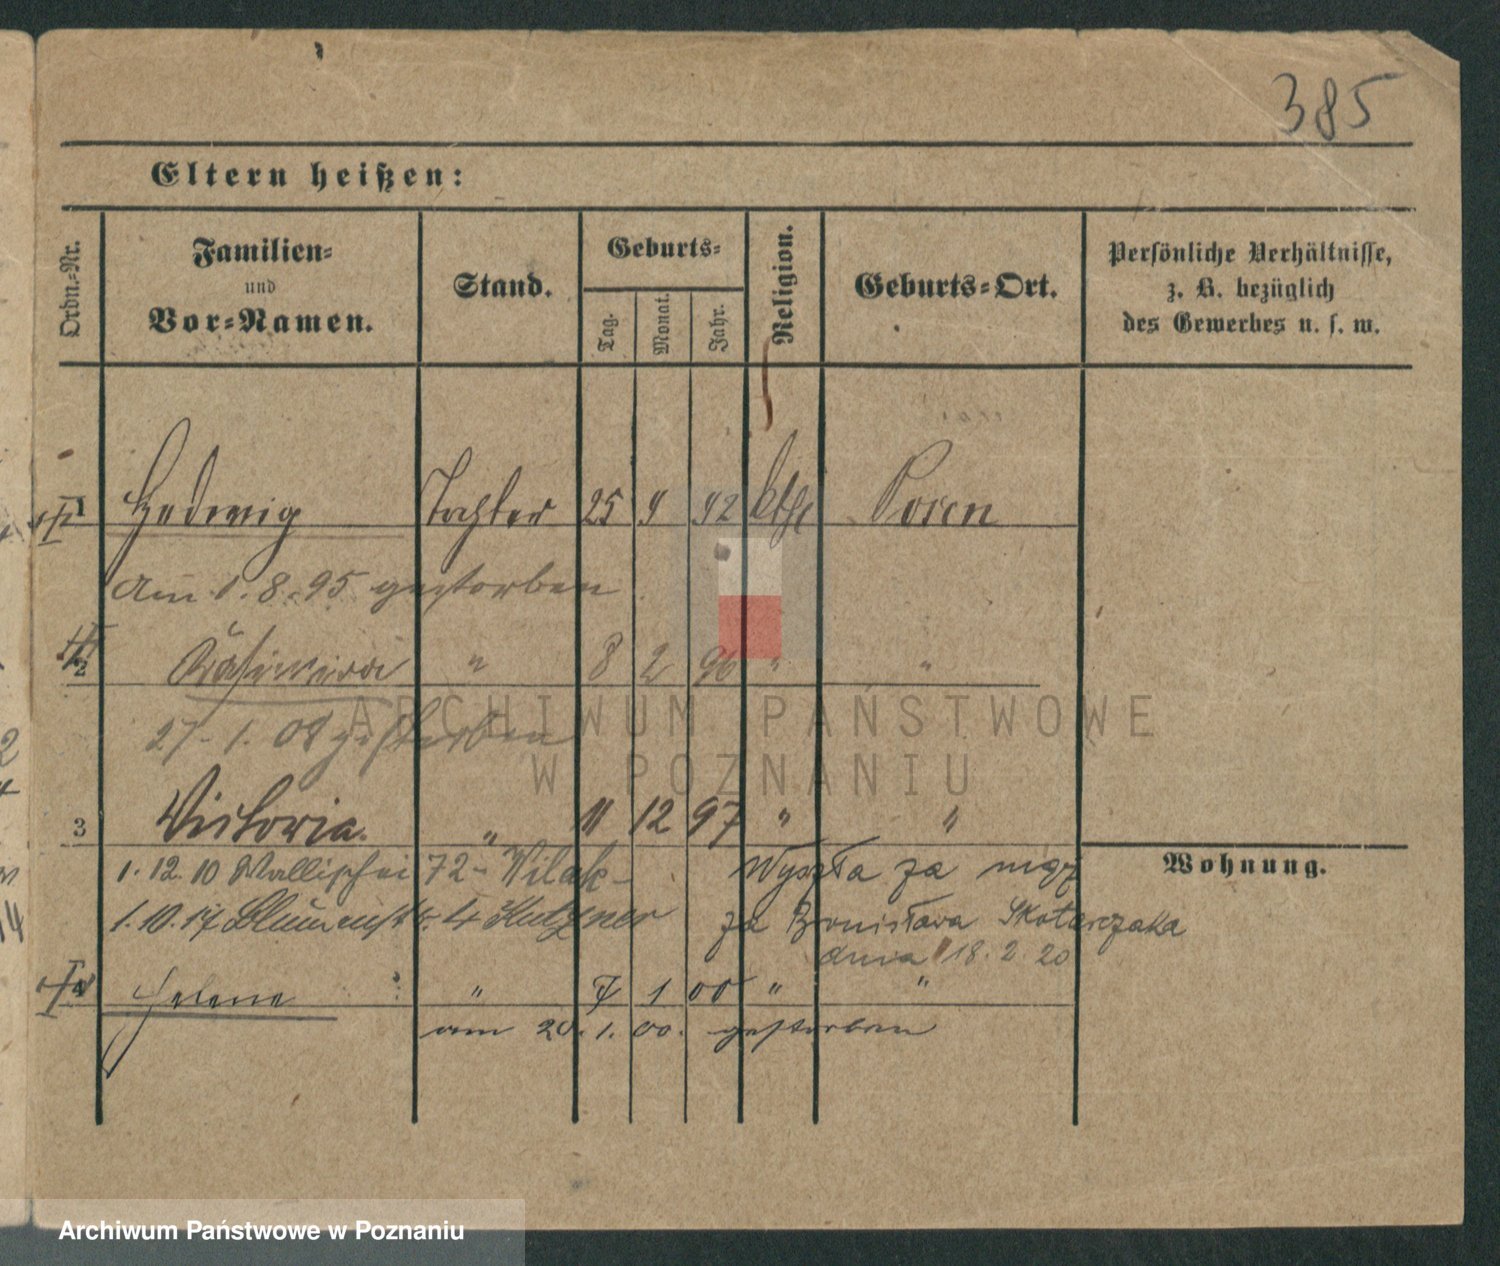 385
Eltern heißen:
Ordn.-Nr.
Familien-
und
Vor-Namen.
Stand.
Geburts-
Tag.
Monat.
Jahr.
Religion.
Geburts-Ort.
Persönliche Verhältnisse,
z. B. bezüglich
des Gewerbes u. s. w.
1 Hedwig Tochter 25 9 92 kth Posen
am 1.8.95 gestorben
2 Kasimira " 8 2 96 " "
27.1.08 gestorben
ARCHIWUM PAŃSTWOWE
W POZNANIU
3 Victoria. " 11 12 97 " "
Wohnung.
1.12.10 Wallischei 72 - Wilak - Wyszła za mąż
1.10.17 4 Kutzner za Bronisława Skotarczaka
dnia 18.2.20
4 Helene " 7 1 00 " "
am 20.1.00. gestorben
Archiwum Państwowe w Poznaniu